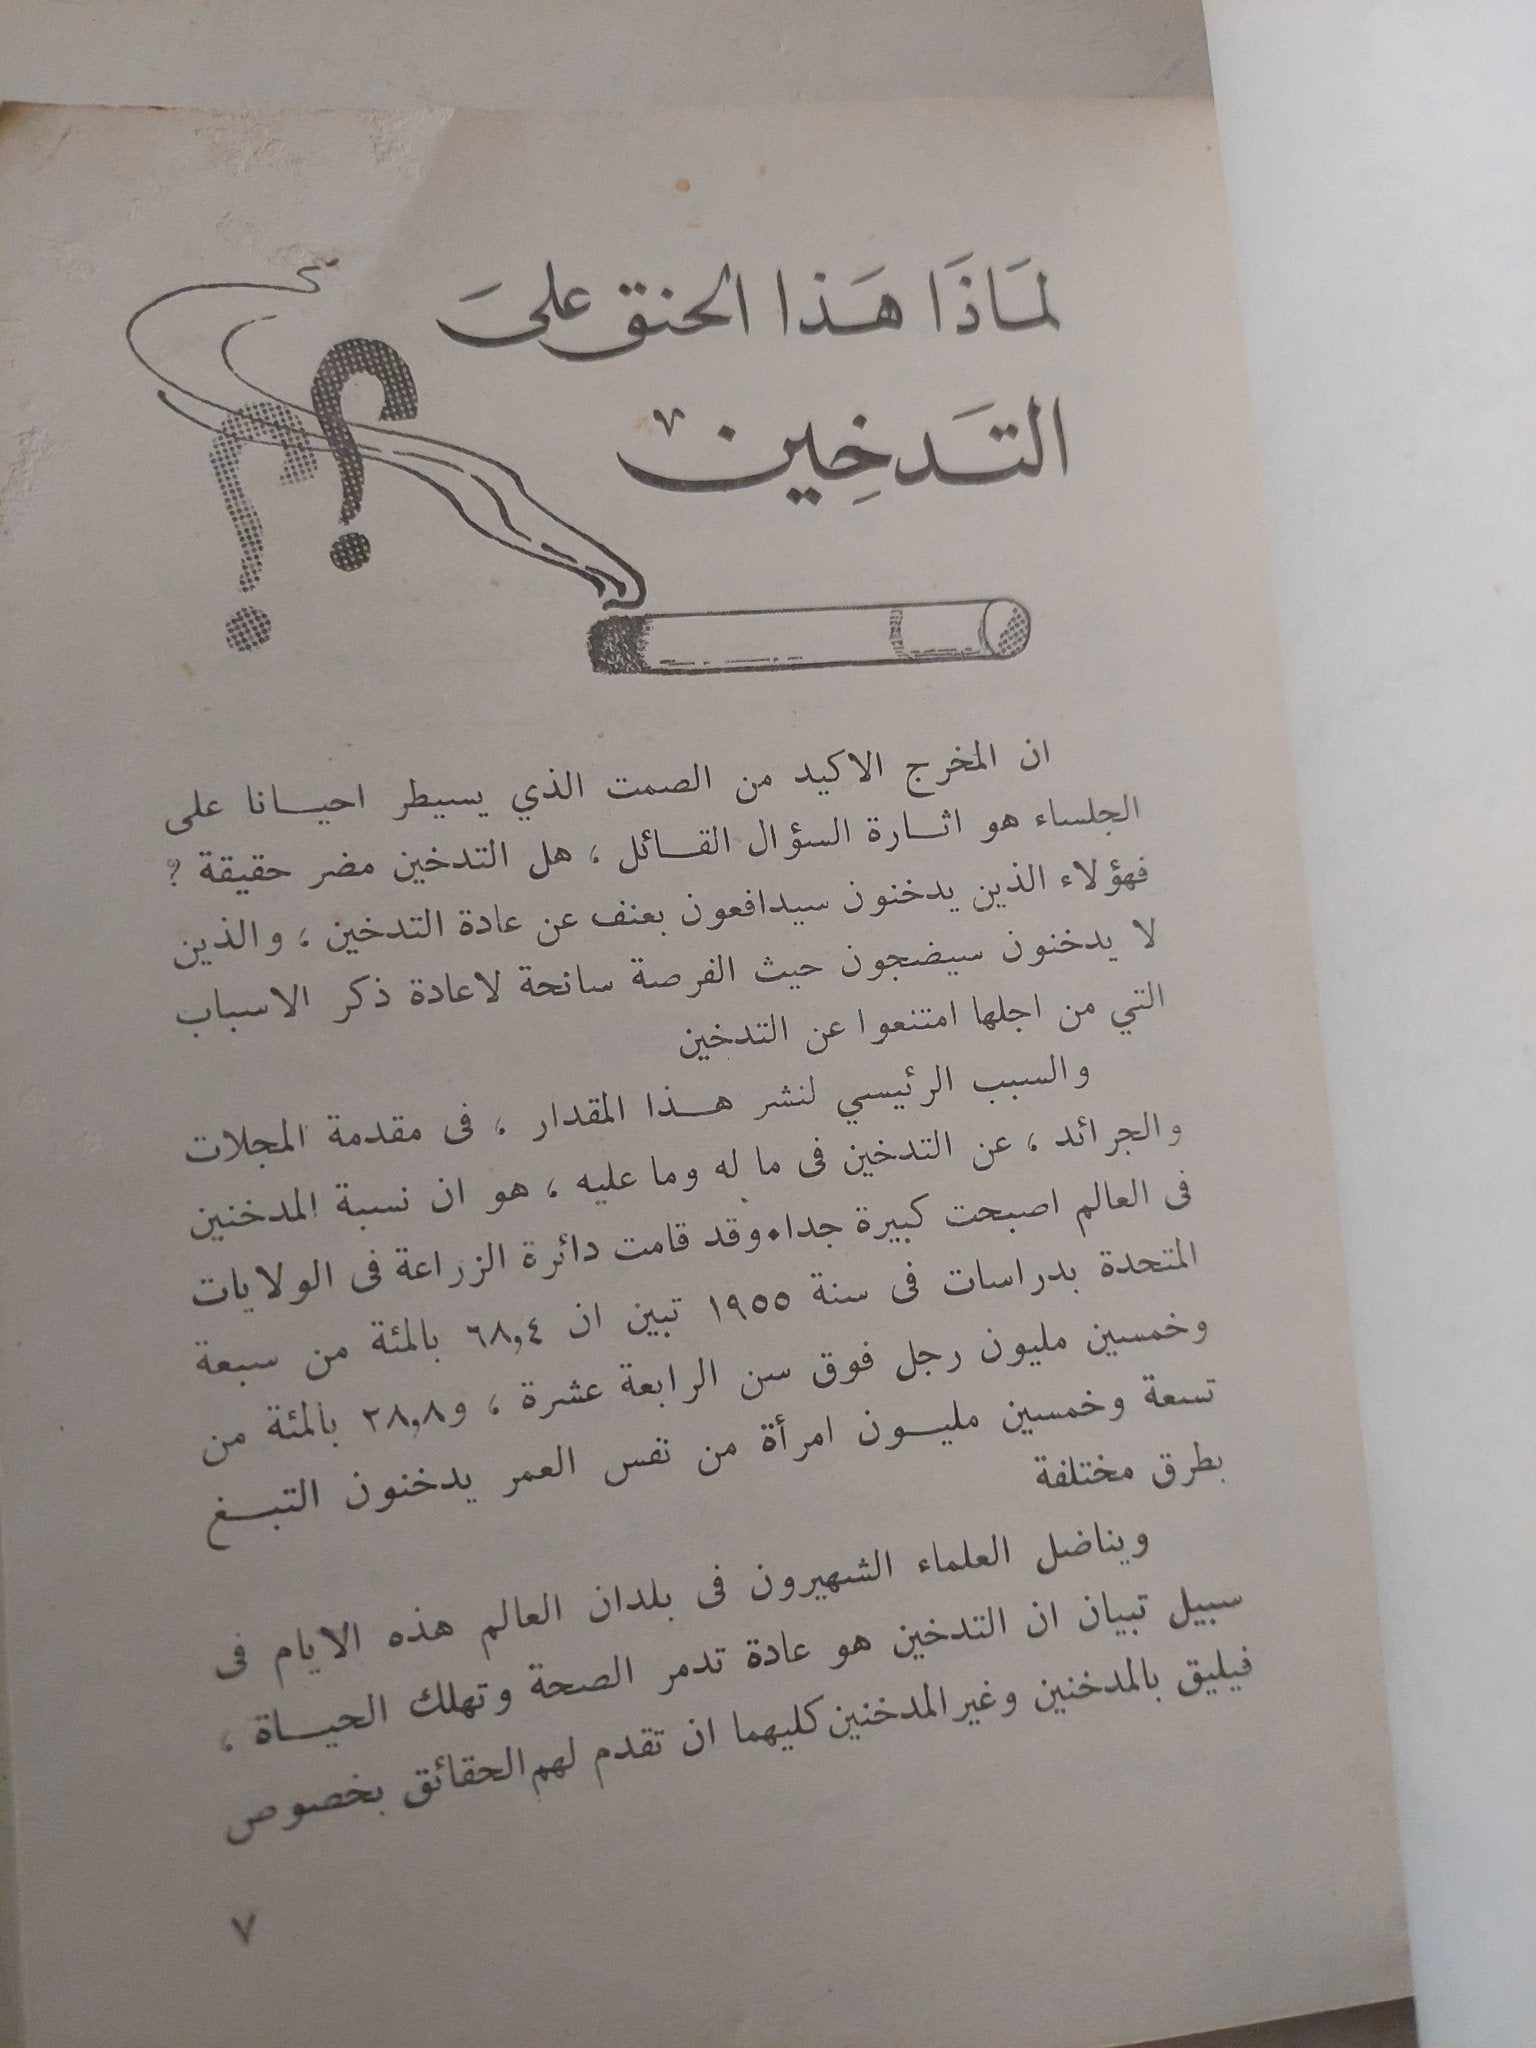 لمَاذَا هَذا الحنق علىَ
التَدخِين
؟؟
ان المخرج الاكيد من الصمت الذي يسيطر احيـــانا على
الجلساء هو اثـــارة السؤال القـــائل ، هل التدخين مضر حقيقة ؟
فهؤلاء الذين يدخنون سيدافعون بعنف عن عادة التدخين ، والذين
لا يدخنون سيضجون حيث الفرصة سانحة لاعادة ذكر الاسباب
التي من اجلها امتنعوا عن التدخين
والسبب الرئيسي لنشر هـــذا المقدار ، فى مقدمة المجلات
والجرائد ، عن التدخين فى ما له وما عليه ، هو ان نسبة المدخنين
فى العالم اصبحت كبيرة جدا٠وقد قامت دائرة الزراعة فى الولايات
المتحدة بدراسات فى سنة ١٩٥٥ تبين ان ٦٨,٤ بالمئة من سبعة
وخمسين مليون رجل فوق سن الرابعة عشرة ، و٢٨,٨ بالمئة من
تسعة وخمسين مليـــون امرأة من نفس العمر يدخنون التبـــغ
بطرق مختلفة
ويناضل العلماء الشهيرون فى بلدان العالم هذه الايام فى
سبيل تبيان ان التدخين هو عادة تدمر الصحة وتهلك الحيـــاة ،
فيليق بالمدخنين وغير المدخنين كليهما ان تقدم لهم الحقائق بخصوص
٧